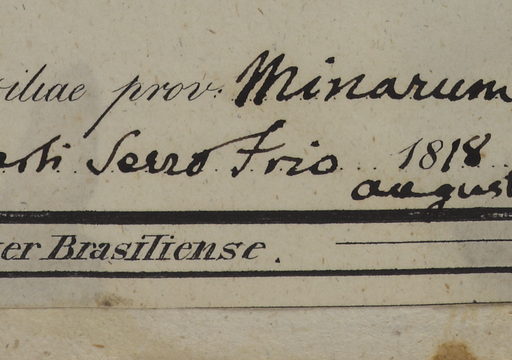 iliae prov. Minarum
Serro Frio 1818
august
er Brasiliense.